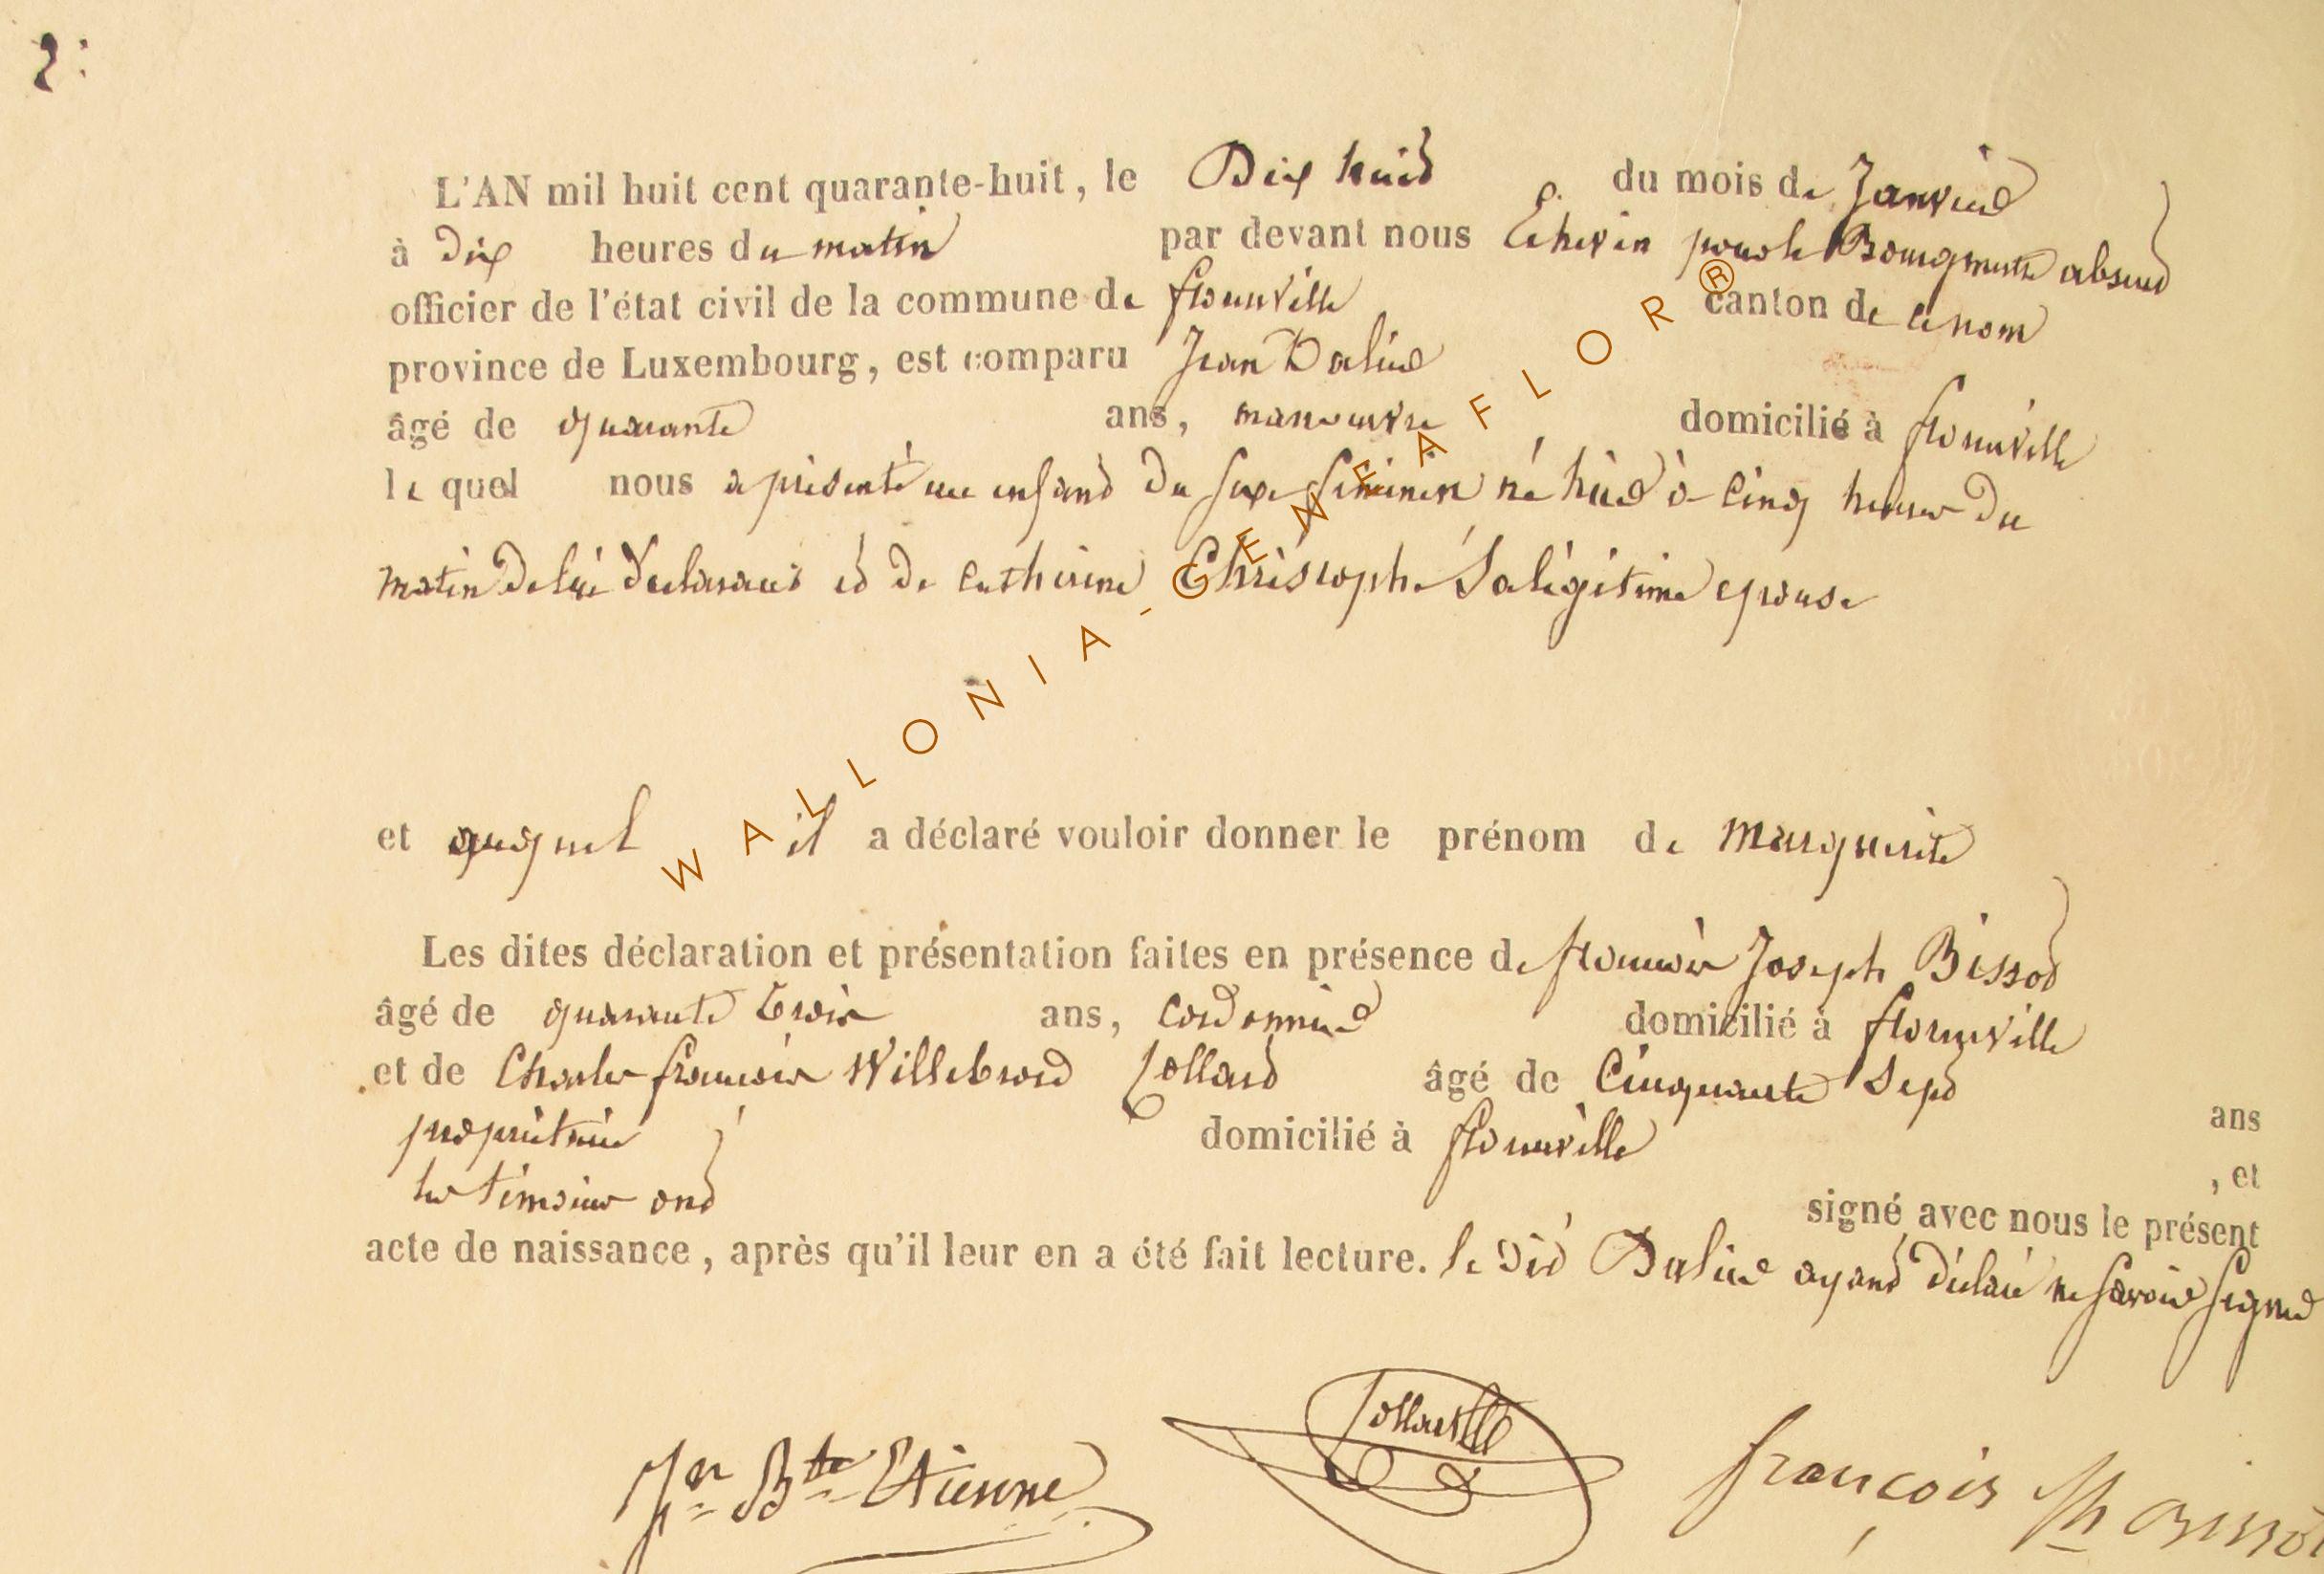 2:
L'AN mil huit cent quarante-huit, le Dix huit du mois de Janvier
à dix heures du matin par devant nous Echevin pour le Bourgmestre absent
officier de l'état civil de la commune de florenville canton de ce nom
province de Luxembourg, est comparu Jean Dalier
âgé de quarante ans, manoeuvre domicilié à florenville
le quel nous a présenté un enfant du sexe féminin né hier à cinq heures du
matin de lui déclarant et de catherine Christophe Sa légitime epouse
et auquel il a déclaré vouloir donner le prénom de marguerite
Les dites déclaration et présentation faites en présence de francois Joseph Bissot
âgé de quarante trois ans, cordonnier domicilié à florenville
et de Charles francois Willebrord Collard âgé de Cinquante Sept ans
propriétaire domicilié à florenville , et
les témoins ont signé avec nous le présent
acte de naissance, après qu'il leur en a été fait lecture. le dit Dalier ayant déclaré ne savoir signer
Jn Bte Etienne
françois Jh Bissot
WALLONIA-GENEAFLOR®